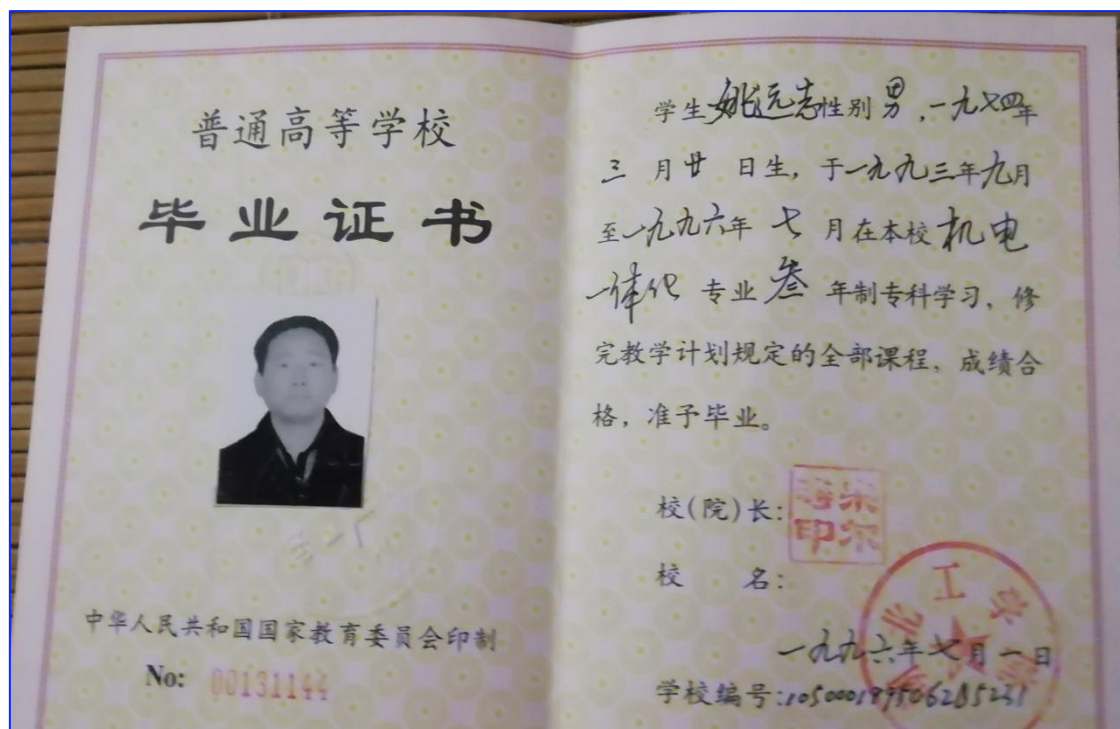 普通高等学校
毕业证书
中华人民共和国国家教育委员会印制
No: 00131144
学生姚远志性别男，一九七四年
三月廿日生，于一九九三年九月
至一九九六年七月在本校机电
一体化专业叁年制专科学习，修
完教学计划规定的全部课程，成绩合
格，准予毕业。
校(院)长:
校名:
北工学
一九九六年七月一日
学校编号: